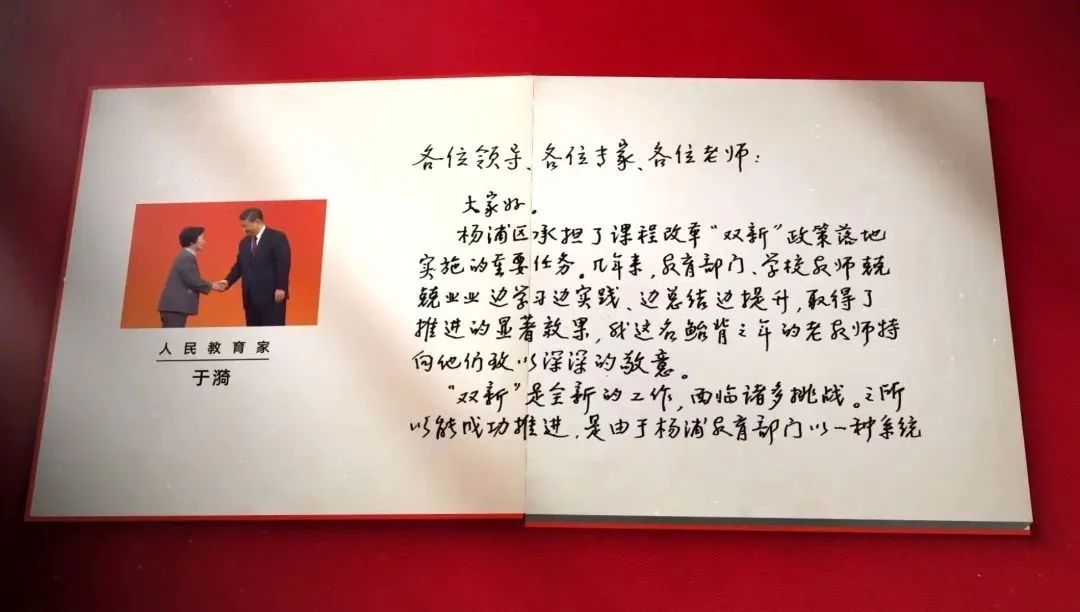 人民教育家
于漪
各位领导、各位专家、各位老师：
大家好。
杨浦区承担了课程改革“双新”政策落地
实施的重要任务。几年来，教育部门、学校教师兢
兢业业边学习边实践、边总结边提升，取得了
推进的显著效果，我这名鲐背之年的老教师特
向他们致以深深的敬意。
“双新”是全新的工作，面临诸多挑战。之所
以能成功推进，是由于杨浦教育部门以一种系统